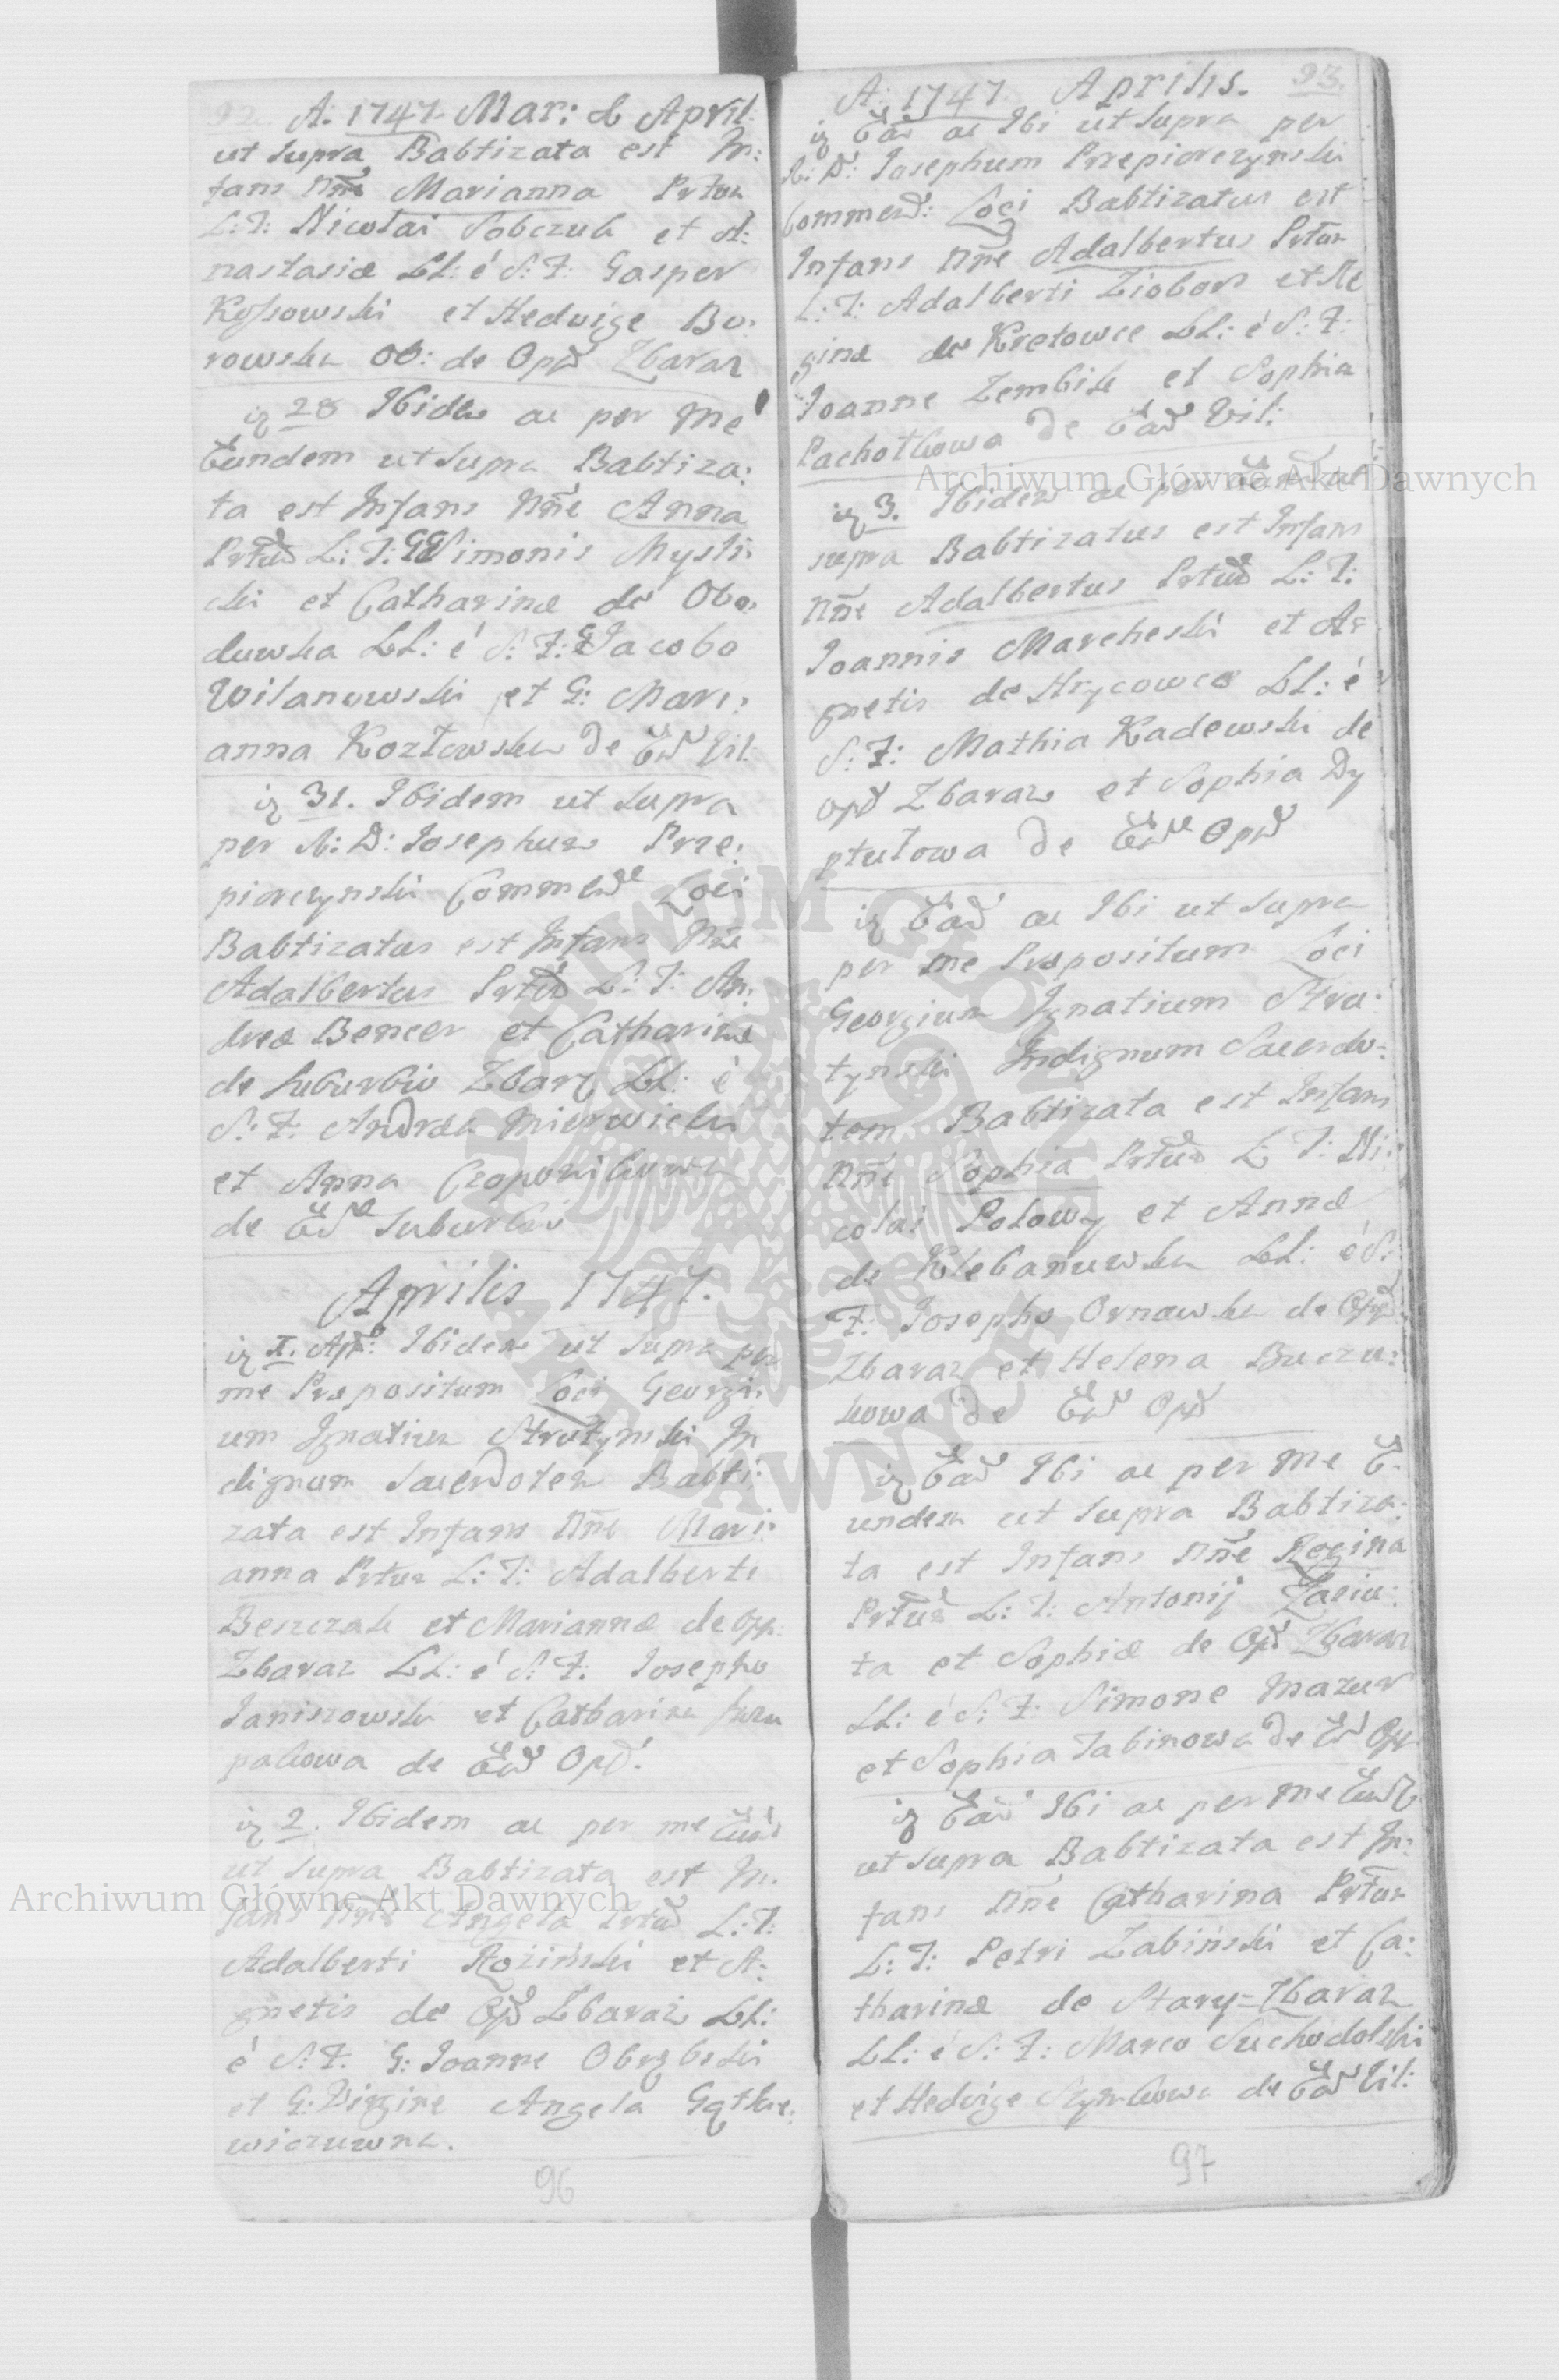 92. A: 1747 Mar: & April
ut supra Babtizata est In:
fans Nne Marianna Prtūn
L: T: Nicolai Sobczuk et A:
nastasiæ LL: é S: F: Gasper
Kossowski et Hedvige Bo:
rowska OO: de Opd Zbaraz
ig 28 Ibidem ac per Me
Eundem ut Supra Babtiza:
ta est Infans Nne Anna
Prtūm L: T: GG Simonis Mysli
cki et Catharinæ de Obo:
duwka LL: é S: F: G Jacobo
Wilanowski et G: Mari:
anna Kozłowska de Ead Vil:
ig 31. Ibidem ut supra
per A: D: Iosephum Prze:
piorczynski Commend Loci
Babtizatus est Infans Nne
Adalbertus Prtūm L: T: An:
dreæ Bencer et Catharinæ
de Suburbio Zbarz LL: é
S: F: Andrea Mierwicki
et Anna
de Eode Suburbio
Aprilis 1747.
ig I. Apr: Ibidem ut Supra per
me Præpositum Loci Georgi:
um Ignatium Strutynski In
dignum Sacerdotem Babti:
zata est Infans Nne Mari:
anna Prtūm L: T: Adalberti
Beszczak et Mariannæ de Opp:
Zbaraz LL: é S: F: Iosepho
Janiszowski et Catharina
pakowa de Eod Opd:
ig 2. Ibidem ac per me Eund
ut Supra Babtizata est In:
fans Nne Angela Prtūm L: T:
Adalberti Roziński et A:
gnetis de Opd Zbaraż LL:
é S: F: G: Joanne Obrębski
et G: Virgine Angela Gątkie:
wiczuwna.
96
A: 1747 Aprilis. 93.
ig Ead ac Ibi ut Supra per
A: D: Iosephum Przepiorczynski
Commend: Loci Babtizatus est
Infans Nne Adalbertus Prtūm
L: T: Adalberti Ziobor et Re
ginæ de Kretowce LL: é S: F:
Joanne Zembik et Sophia
Pachotkowa de Ead Vil:
ig 3. Ibidem ac per Eund ut
supra Babtizatus est Infans
Nne Adalbertus Prtūm L: T:
Joannis Marcheski et A:
gnetis de Hrycowce LL: é
S: F: Mathia Kadewski de
opd Zbaraz et Sophia Dy
ptułowa de Eode Opd
ig Ead ac Ibi ut Supra
per me Præpositum Loci
Georgium Ignatium Stru:
tynski Indignum Sacerdo:
tem Babtizata est Infans
Nne Sophia Prtūm L: T: Ni:
colai Polowy et Annæ
de Klebanuwka LL: é S:
F: Iosepho Ornawski de Opd
Zbaraz et Helena Buczu:
kowa de Eod Opd
ig Ead Ibi ac per me E:
undem ut Supra Babtiza:
ta est Infans Nne Regina
Prtūm L: T: Antonij Zaciu:
ta et Sophiæ de Opd Zbaraz
LL: é S: F: Simone Mazur
et Sophia Jabinowa de Eod Opp
ig Ead Ibi ac per me Eund
ut supra Babtizata est In:
fans Nne Catharina Prtūm
L: T: Petri Zabiński et Ca:
tharinæ de Stary=Zbaraz
LL: é S: F: Marco Suchodolski
et Hedvige Szymkowa de Ead Vil:
97
Archiwum Główne Akt Dawnych
Archiwum Główne Akt Dawnych
ARCHIWUM GŁÓWNE AKT DAWNYCH